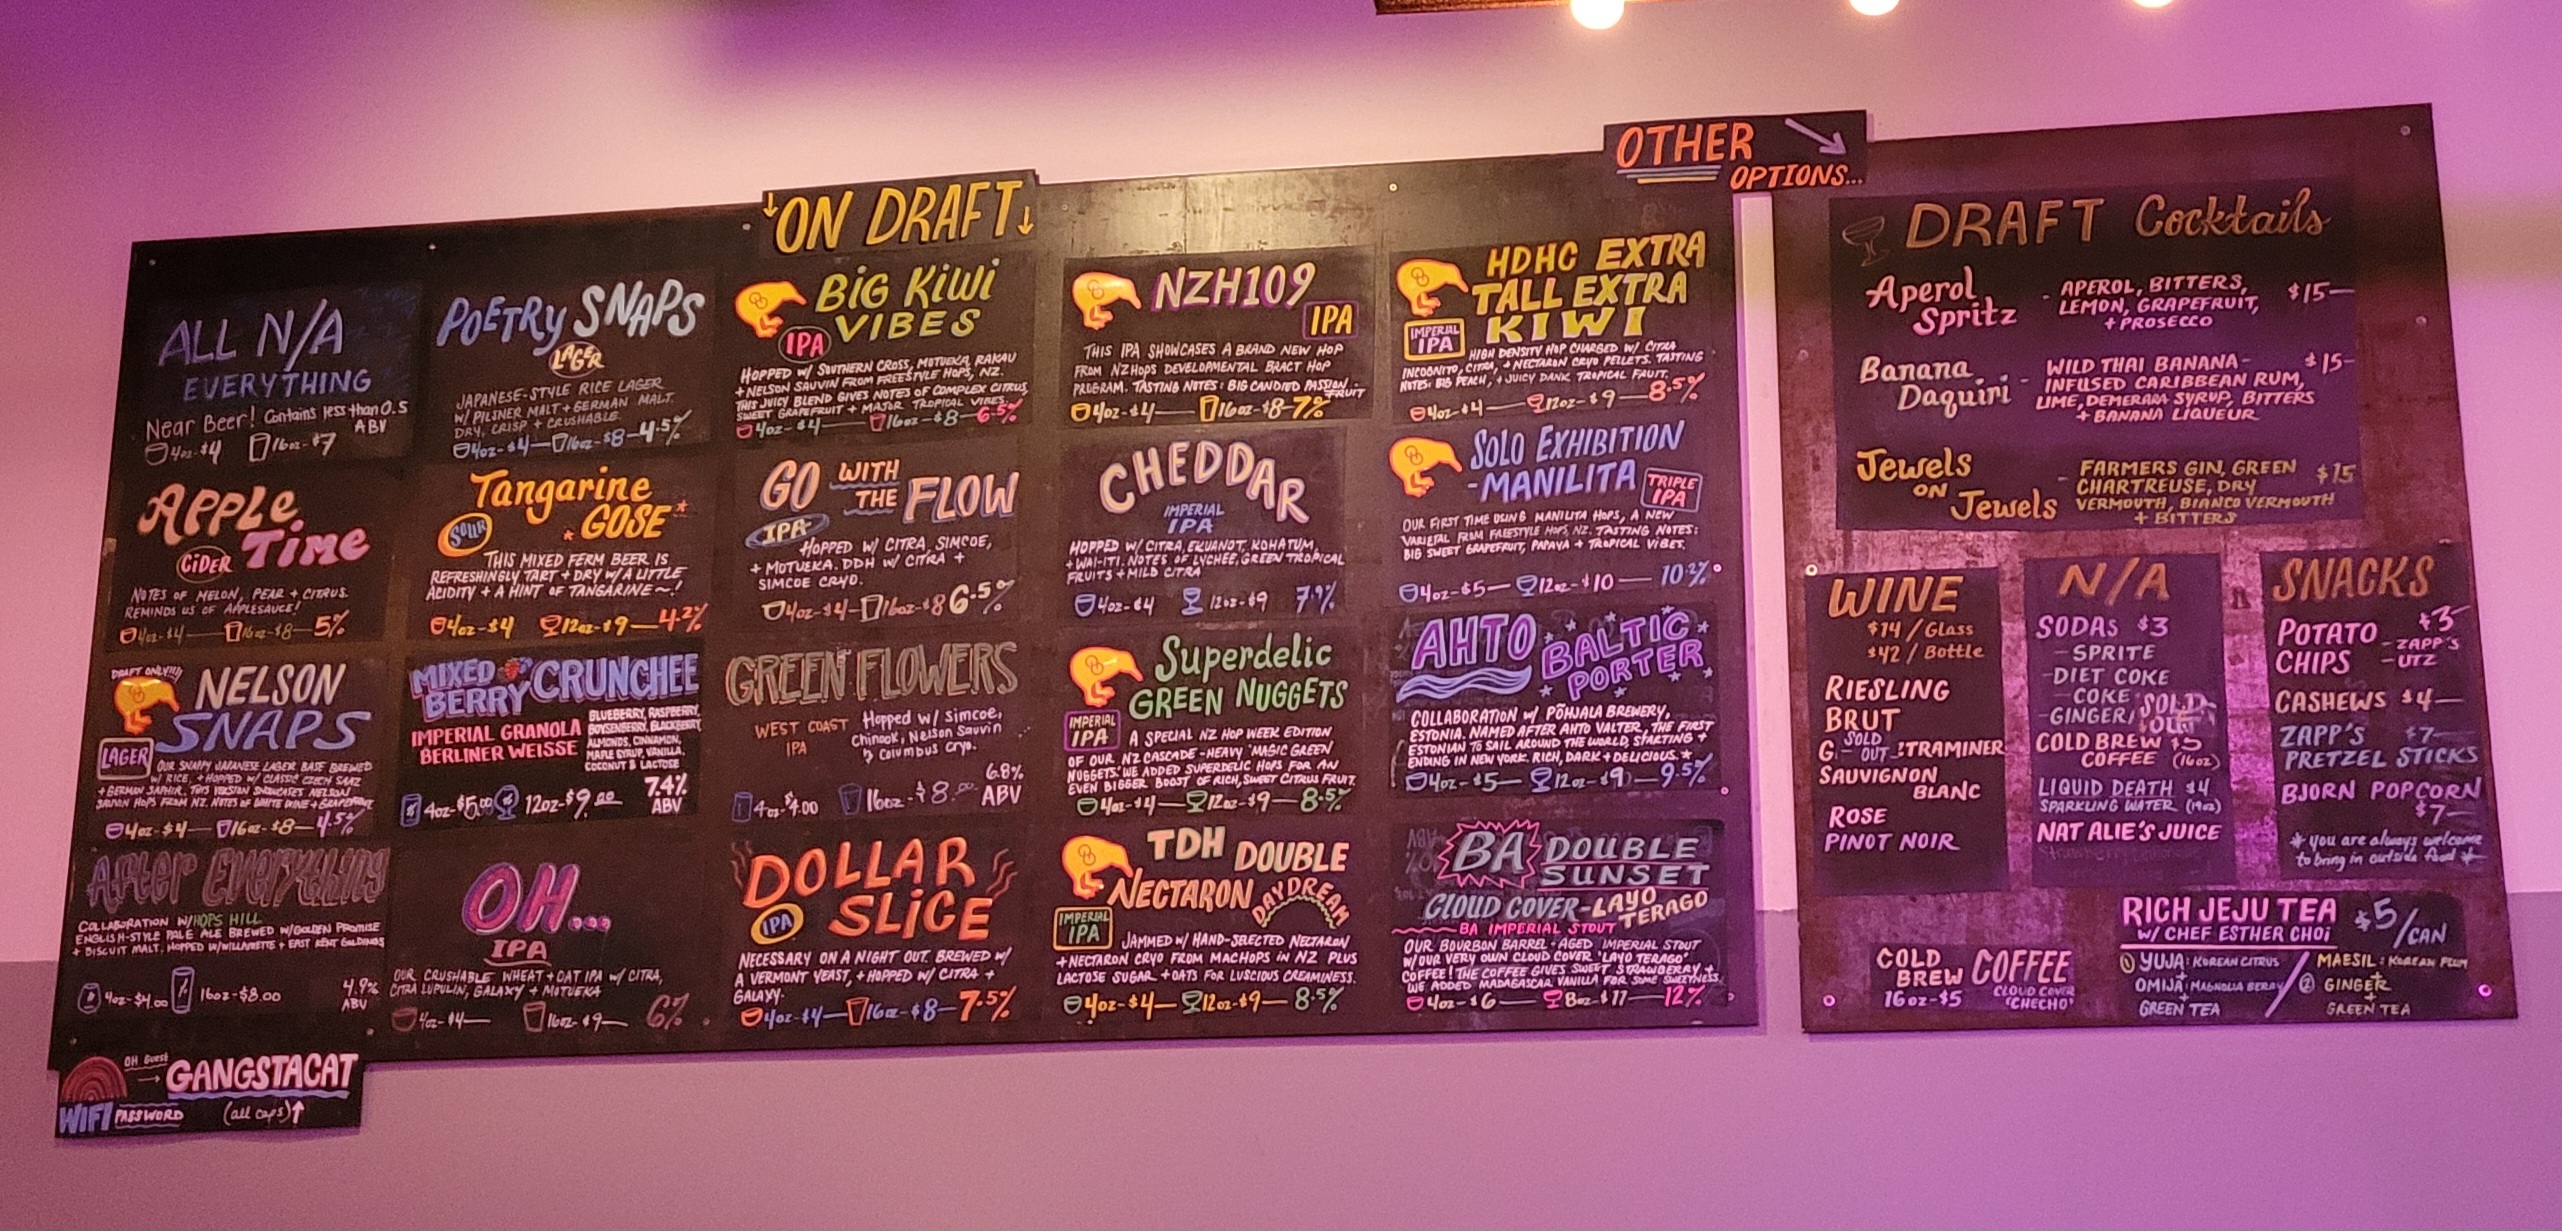 ↓ON DRAFT↓
ALL N/A
EVERYTHING
Near Beer! Contains less than 0.5
ABV
4oz-$4 16oz-$7
APPLE
TIME
CIDER
NOTES OF MELON, PEAR + CITRUS.
REMINDS US OF APPLESAUCE!
4oz-$4 — 16oz-$8 — 5%
DRAFT ONLY!!!
NELSON
SNAPS
LAGER
OUR SNAPPY JAPANESE LAGER BASE BREWED
W/ RICE, + HOPPED W/ CLASSIC CZECH SAAZ
+ GERMAN SAPHIR. THIS VERSION SHOWCASES NELSON
SAUVIN HOPS FROM NZ. NOTES OF WHITE WINE + GRAPEFRUIT
4oz-$4 — 16oz-$8 — 4.5%
After Everything
COLLABORATION W/HOPS HILL
ENGLISH-STYLE PALE ALE BREWED W/GOLDEN PROMISE
+ BISCUIT MALT, HOPPED W/WILLAMETTE + EAST KENT GOLDINGS
4oz-$4.00 16oz-$8.00 4.9%
ABV
POETRY SNAPS
LAGER
JAPANESE-STYLE RICE LAGER
W/ PILSNER MALT + GERMAN MALT.
DRY, CRISP + CRUSHABLE.
4oz-$4 — 16oz-$8 — 4.5%
Tangarine
GOSE
SOUR
THIS MIXED FERM BEER IS
REFRESHINGLY TART + DRY W/A LITTLE
ACIDITY + A HINT OF TANGARINE ~!
4oz-$4 12oz-$9 — 4.2%
MIXED
BERRY CRUNCHEE
IMPERIAL GRANOLA
BERLINER WEISSE
BLUEBERRY, RASPBERRY,
BOYSENBERRY, BLACKBERRY
ALMONDS, CINNAMON,
MAPLE SYRUP, VANILLA,
COCONUT & LACTOSE
4oz-$5.00 12oz-$9.00 7.4%
ABV
OH...
IPA
OUR CRUSHABLE WHEAT + OAT IPA W/ CITRA,
CITRA LUPULIN, GALAXY + MOTUEKA
4oz-$4 — 16oz-$9 — 6%
BIG KIWI
VIBES
IPA
HOPPED W/ SOUTHERN CROSS, MOTUEKA, RAKAU
+ NELSON SAUVIN FROM FREESTYLE HOPS, NZ.
THIS JUICY BLEND GIVES NOTES OF COMPLEX CITRUS,
SWEET GRAPEFRUIT + MAJOR TROPICAL VIBES.
4oz-$4 — 16oz-$8 — 6.5%
GO WITH
THE FLOW
IPA
HOPPED W/ CITRA, SIMCOE,
+ MOTUEKA. DDH W/ CITRA +
SIMCOE CRYO.
4oz-$4 — 16oz-$8 6.5%
GREEN FLOWERS
WEST COAST
IPA
Hopped w/ Simcoe,
Chinook, Nelson Sauvin
& Columbus Cryo.
4oz-$4.00 16oz-$8.00 6.8%
ABV
DOLLAR
SLICE
IPA
NECESSARY ON A NIGHT OUT. BREWED W/
A VERMONT YEAST, + HOPPED W/ CITRA +
GALAXY.
4oz-$4 — 16oz-$8 — 7.5%
NZH109
IPA
THIS IPA SHOWCASES A BRAND NEW HOP
FROM NZHOPS DEVELOPMENTAL BRACT HOP
PROGRAM. TASTING NOTES: BIG CANDIED PASSION-
FRUIT
4oz-$4 — 16oz-$8-7%
CHEDDAR
IMPERIAL
IPA
HOPPED W/ CITRA, EKUANOT, KOHATUM,
+ WAI-ITI. NOTES OF LYCHEE, GREEN TROPICAL
FRUITS + MILD CITRA
4oz-$4 12oz-$9 7.9%
Superdelic
GREEN NUGGETS
IMPERIAL
IPA
A SPECIAL NZ HOP WEEK EDITION
OF OUR NZ CASCADE-HEAVY 'MAGIC GREEN
NUGGETS'. WE ADDED SUPERDELIC HOPS FOR AN
EVEN BIGGER BOOST OF RICH, SWEET CITRUS FRUIT.
4oz-$4 — 12oz-$9 — 8.5%
TDH DOUBLE
NECTARON
DAYDREAM
IMPERIAL
IPA
JAMMED W/ HAND-SELECTED NECTARON
+ NECTARON CRYO FROM MACHOPS IN NZ PLUS
LACTOSE SUGAR + OATS FOR LUSCIOUS CREAMINESS.
4oz-$4 — 12oz-$9 — 8.5%
HDHC EXTRA
TALL EXTRA
KIWI
IMPERIAL
IPA
HIGH DENSITY HOP CHARGED W/ CITRA
INCOGNITO, CITRA, + NECTARON CRYO PELLETS. TASTING
NOTES: BIG PEACH, + JUICY DANK TROPICAL FRUIT.
4oz-$4 — 12oz-$9 — 8.5%
SOLO EXHIBITION
-MANILITA
TRIPLE
IPA
OUR FIRST TIME USING MANILITA HOPS, A NEW
VARIETAL FROM FREESTYLE HOPS, NZ. TASTING NOTES:
BIG SWEET GRAPEFRUIT, PAPAYA + TROPICAL VIBES.
4oz-$5 — 12oz-$10 — 10.2%
AHTO
BALTIC
PORTER
COLLABORATION W/ PÕHJALA BREWERY,
ESTONIA. NAMED AFTER AHTO VALTER, THE FIRST
ESTONIAN TO SAIL AROUND THE WORLD, STARTING +
ENDING IN NEW YORK. RICH, DARK + DELICIOUS.
4oz-$5 — 12oz-$9 — 9.5%
BA DOUBLE
SUNSET
CLOUD COVER-LAYO
TERAGO
BA IMPERIAL STOUT
OUR BOURBON BARREL-AGED IMPERIAL STOUT
W/OUR VERY OWN CLOUD COVER 'LAYO TERAGO'
COFFEE! THE COFFEE GIVES SWEET STRAWBERRY +
WE ADDED MADAGASCAR VANILLA FOR SOME SWEETNESS.
4oz-$6 — 8oz-$11 — 12%
OH Guest
→ GANGSTACAT
WIFI PASSWORD (all caps)↑
OTHER
OPTIONS...
DRAFT Cocktails
Aperol
Spritz
- APEROL, BITTERS,
LEMON, GRAPEFRUIT,
+ PROSECCO
$15—
Banana
Daquiri
- WILD THAI BANANA-
INFUSED CARIBBEAN RUM,
LIME, DEMERARA SYRUP, BITTERS
+ BANANA LIQUEUR
$15-
Jewels
ON Jewels
- FARMERS GIN, GREEN
CHARTREUSE, DRY
VERMOUTH, BIANCO VERMOUTH
+ BITTERS
$15
WINE
$14 / Glass
$42 / Bottle
RIESLING
BRUT
G SOLD OUT TRAMINER
SAUVIGNON
BLANC
ROSE
PINOT NOIR
N/A
SODAS $3
- SPRITE
- DIET COKE
- COKE
- GINGER/ SOLD OUT
COLD BREW $5
COFFEE (16oz)
LIQUID DEATH $4
SPARKLING WATER (19oz)
NAT ALIE'S JUICE
SNACKS
POTATO
CHIPS
$3-
- ZAPP'S
- UTZ
CASHEWS $4—
ZAPP'S $7-
PRETZEL STICKS
BJORN POPCORN
$7—
* you are always welcome
to bring in outside food *
COLD
BREW COFFEE
16oz-$5
CLOUD COVER
'CHECHO'
RICH JEJU TEA
W/ CHEF ESTHER CHOI
$5/CAN
① YUJA: KOREAN CITRUS
+
OMIJA: MAGNOLIA BERRY
+
GREEN TEA
② MAESIL: KOREAN PLUM
+
GINGER
+
GREEN TEA